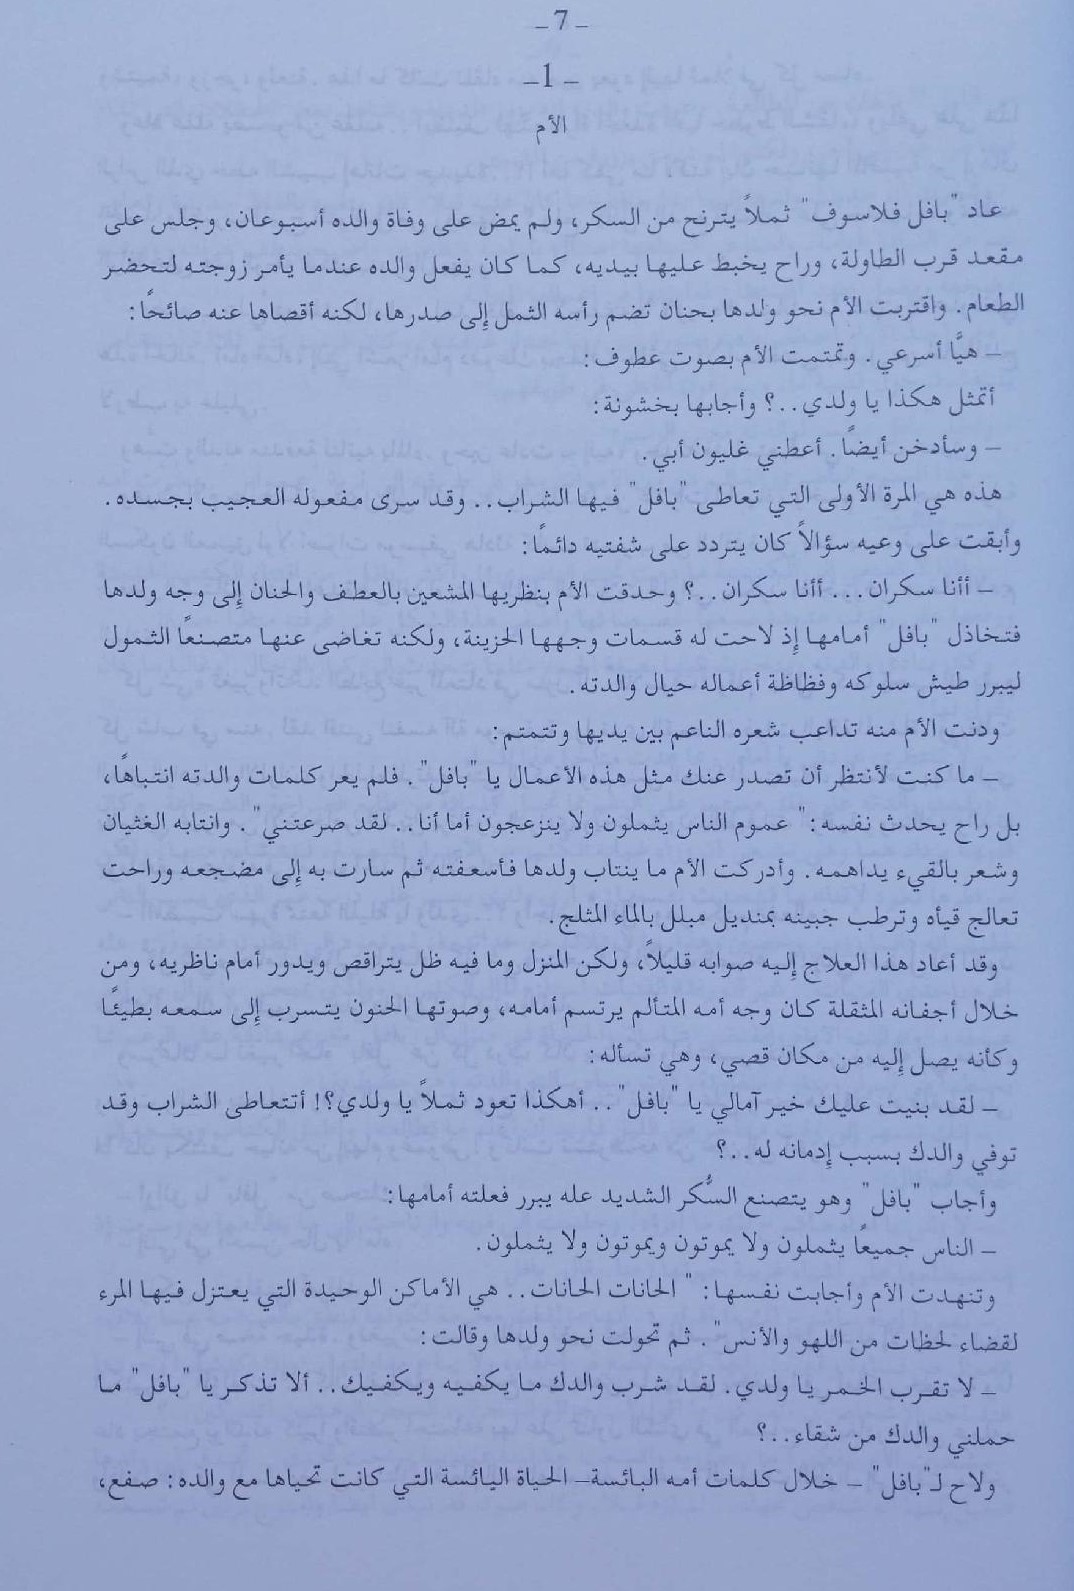 _ 7 _
_ 1 _
الأم
عاد "بافل فلاسوف" ثملاً يترنح من السكر، ولم يمض على وفاة والده أسبوعان، وجلس على
مقعد قرب الطاولة، وراح يخبط عليها بيديه، كما كان يفعل والده عندما يأمر زوجته لتحضر
الطعام. واقتربت الأم نحو ولدها بحنان تضم رأسه الثمل إلى صدرها، لكنه أقصاها عنه صائحًا:
– هيًّا أسرعي. وتمتمت الأم بصوت عطوف:
أتمثل هكذا يا ولدي ..؟ وأجابها بخشونة:
– وسأدخن أيضاً. أعطني غليون أبي.
هذه هي المرة الأولى التي تعاطى "بافل" فيها الشراب.. وقد سرى مفعوله العجيب بجسده.
وأبقت على وعيه سؤالاً كان يتردد على شفتيه دائمًا:
– أأنا سكران... أأنا سكران ..؟ وحدقت الأم بنظريها المشعين بالعطف والحنان إلى وجه ولدها
فتخاذل "بافل" أمامها إذ لاحت له قسمات وجهها الحزينة، ولكنه تغاضى عنها متصنعًا الثمول
ليبرر طيش سلوكه وفظاظة أعماله حيال والدته.
ودنت الأم منه تداعب شعره الناعم بين يديها وتتمتم:
– ما كنت لأنتظر أن تصدر عنك مثل هذه الأعمال يا "بافل". فلم يعر كلمات والدته انتباهًا،
بل راح يحدث نفسه: "عموم الناس يثملون ولا ينزعجون أما أنا.. لقد صرعتني". وانتابه الغثيان
وشعر بالقيء يداهمه. وأدركت الأم ما ينتاب ولدها فأسعفته ثم سارت به إلى مضجعه وراحت
تعالج قيأه وترطب جبينه بمنديل مبلل بالماء المثلج.
وقد أعاد هذا العلاج إليه صوابه قليلاً، ولكن المنزل وما فيه ظل يتراقص ويدور أمام ناظريه، ومن
خلال أجفانه المثقلة كان وجه أمه المتألم يرتسم أمامه، وصوتها الحنون يتسرب إلى سمعه بطيئًا
وكأنه يصل إليه من مكان قصي، وهي تسأله:
– لقد بنيت عليك خير آمالي يا "بافل".. أهكذا تعود ثملاً يا ولدي؟! أتتعاطى الشراب وقد
توفي والدك بسبب إدمانه له..؟
وأجاب "بافل" وهو يتصنع السُّكر الشديد عله يبرر فعلته أمامها:
– الناس جميعًا يثملون ولا يموتون ويموتون ولا يثملون.
وتنهدت الأم وأجابت نفسها: "الحانات الحانات.. هي الأماكن الوحيدة التي يعتزل فيها المرء
لقضاء لحظات من اللهو والأنس". ثم تحولت نحو ولدها وقالت:
– لا تقرب الخمر يا ولدي. لقد شرب والدك ما يكفيه ويكفيك.. ألا تذكر يا "بافل" ما
حملني والدك من شقاء..؟
ولاح لـ"بافل" – خلال كلمات أمه البائسة– الحياة اليائسة التي كانت تحياها مع والده: صفع،